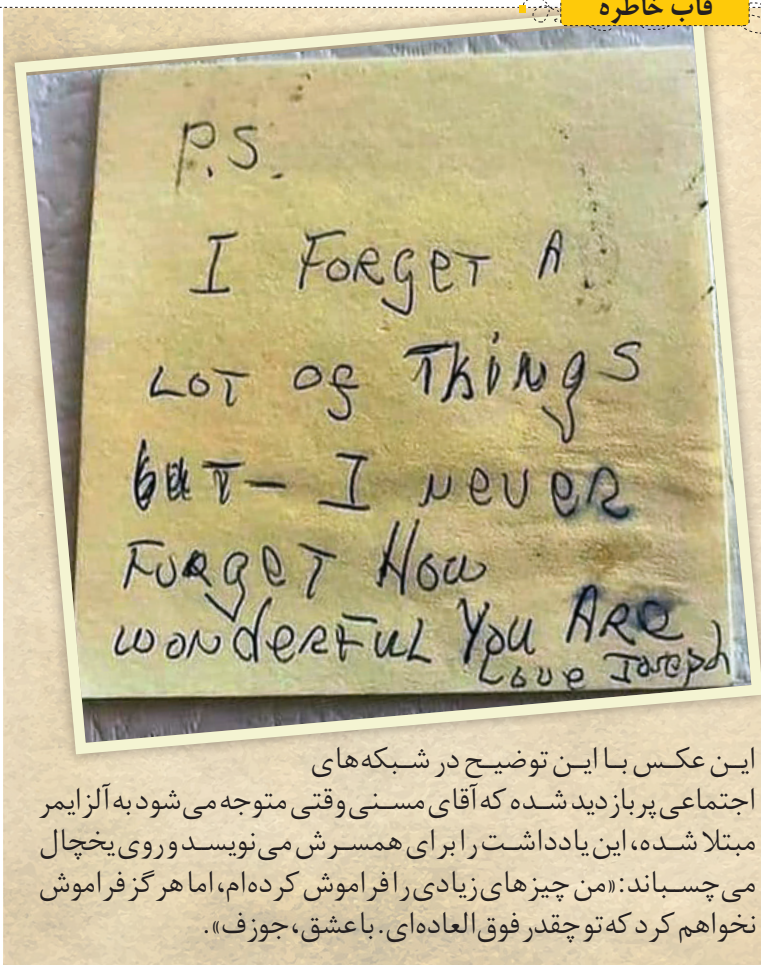 قاب خاطره
P.S.
I FORgeT A
LOT OF THiNgS
buT- I NeVeR
FORgeT How
woNdeRFuL You ARe
Love Joseph
این عکس با این توضیح در شبکه‌های
اجتماعی پربازدید شده که آقای مسنی وقتی متوجه می‌شود به آلزایمر
مبتلا شده، این یادداشت را برای همسرش می‌نویسد و روی یخچال
می‌چسباند: «من چیزهای زیادی را فراموش کرده‌ام، اما هرگز فراموش
نخواهم کرد که تو چقدر فوق‌العاده‌ای. با عشق، جوزف».